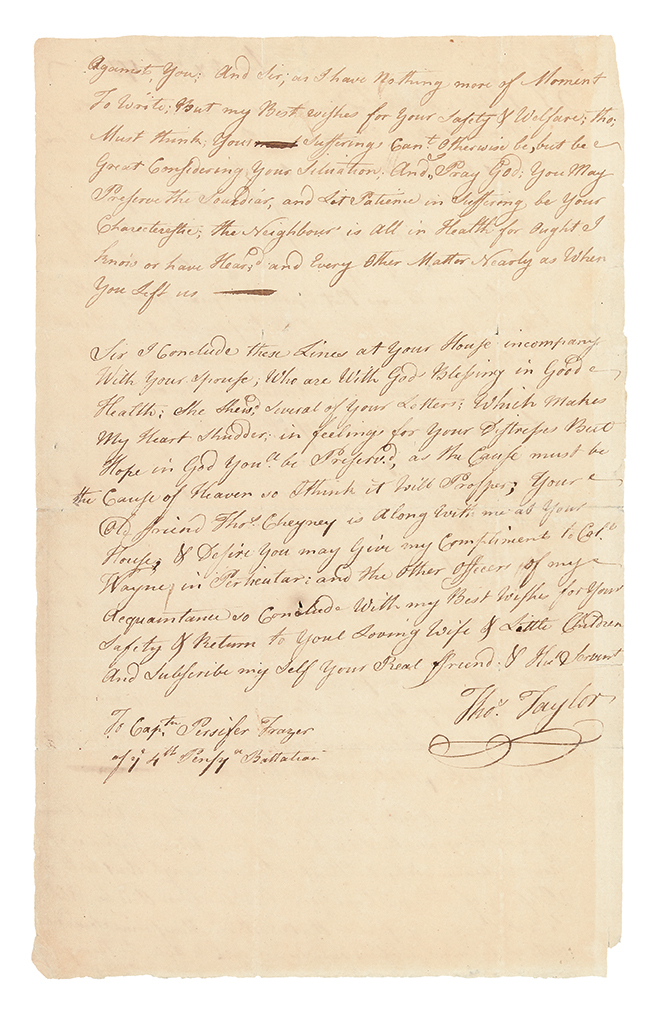 Against, You; And Sir; as I have Nothing more of Moment
To Write; But my Best wishes for Your Safety & Welfare; tho;
Must think; Your Sufferings Can,t Otherwise be, but be
Great Considering Your Situation. And, Pray God; You May
Preserve the Souldiar, and Let Patience in Suffering be Your
Charecterestic; the Neighbours is All in Health for Ought I
know or have Hear,d and Every Other Matter Nearly as When
You Left us
Sir I Conclude these Lines at Your House incompany
With Your Spouse; Who are With Gods Blessing in Good
Health; She Shew,d Several of Your Letters; Which Makes
My Heart Shudder; in feelings for Your Distresses But
Hope in God You,ll be Preserv,d, as the Cause must be
the Cause of Heaven so I think it Will Prosper; Your
Old ffriend Thos. Cheyney is Along With me at Your
House; & Desire You may Give my Compliments to Coll.
Wayne; in Perticular; and the Other Officers of my
Acquaintance so Conclude With my Best Wishes for Your
Safety & Return to Your Loving Wife & Little Children
And Subscribe my Self Your Real ffriend; & Hue Servent
Thos. Taylor
To Captn. Persifer Frazer
of ye 4th Pensya Battalion